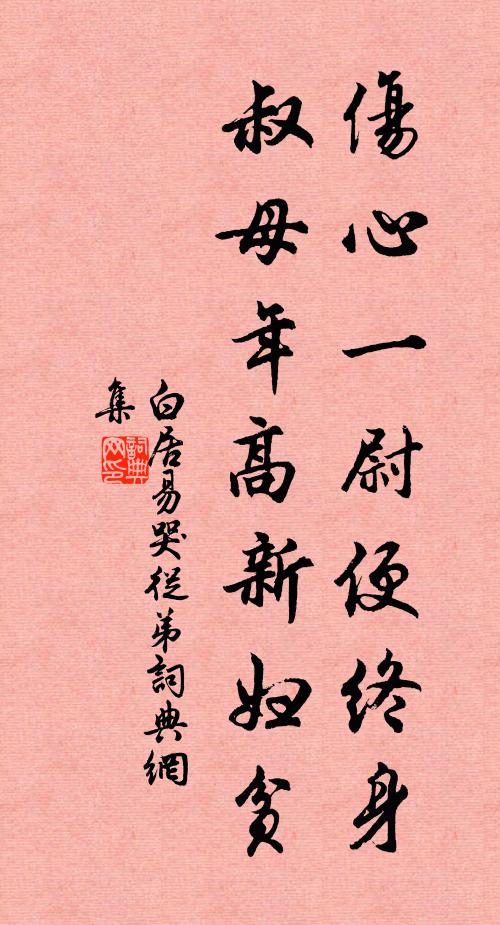 傷心一尉便終身
叔母年高新婦貧
白居易哭從弟詞典網
集
詞典網印